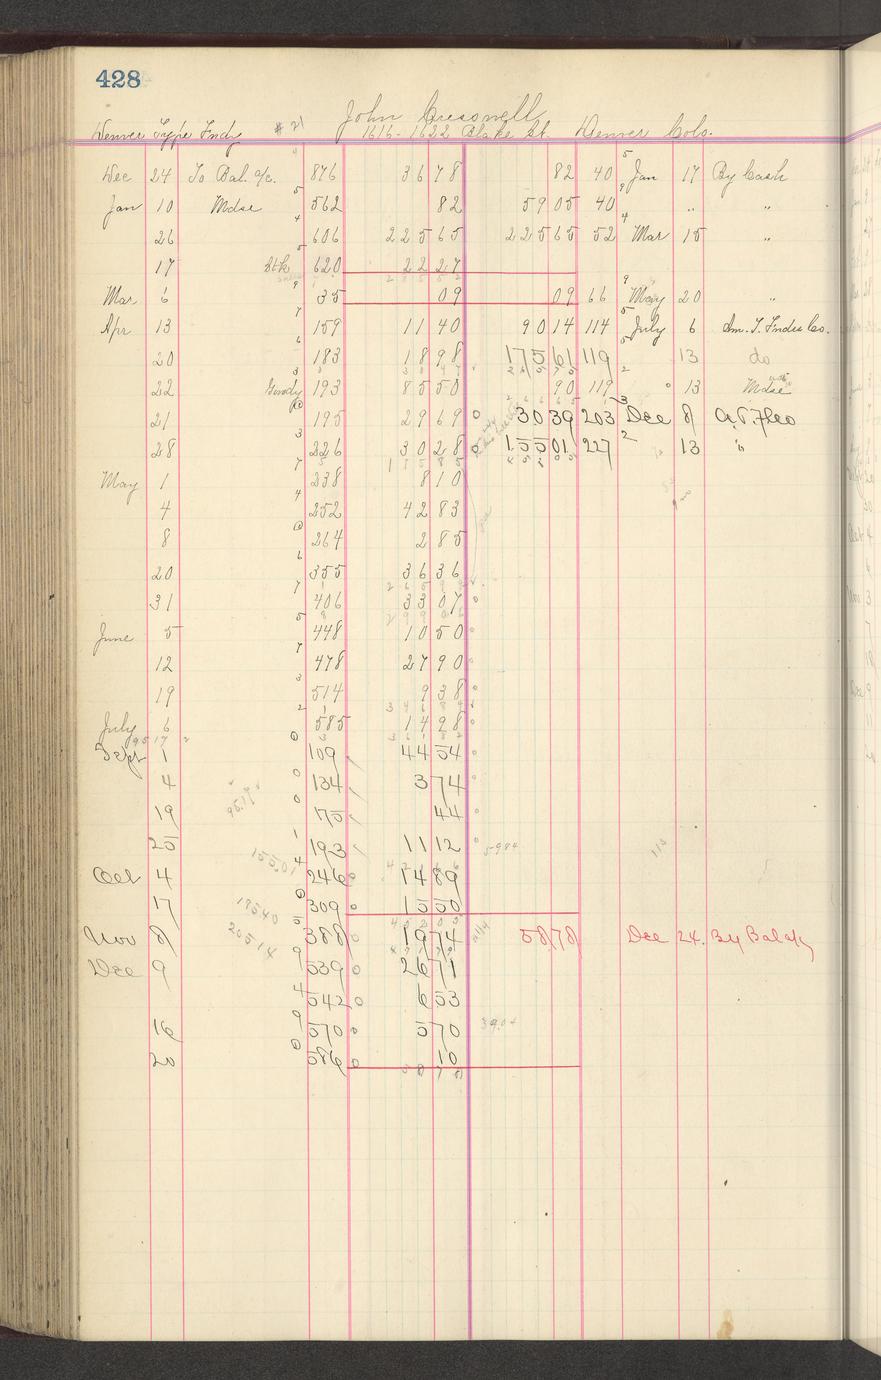 428
John Cresswell
Denver Type Fndy # 21 1616-1622 Blake St. Denver Colo.
Dec 24 To Bal. a/c. 876 36 78 82 40 Jan 17 By Cash
Jan 10 Mdse 562 82 59 05 40 " "
26 606 225 65 225 65 52 Mar 15 "
17 Stk 620 22 27
Mar 6 35 09 09 66 May 20 "
Apr 13 159 11 40 90 14 114 July 6 Am. T. Fndrs Co.
20 183 18 98 175 61 119 13 do
22 Goody 193 85 50 90 119 13 Mdse
21 195 29 69 30 39 203 Dec 8
28 226 30 28 155 01 227 13 "
May 1 238 8 10
4 252 42 83
8 264 2 85
20 355 36 36
31 406 33 07
June 5 448 10 50
12 478 27 90
19 514 9 38
July 6 585 14 98
Sept 1 109 44 54
4 134 3 74
19 175 44
25 193 11 12
Oct 4 246 14 89
17 309 15 50
Nov 8 388 19 74 58 78 Dec 24. By Bal
Dec 9 539 26 71
542 6 53
16 570 5 70
20 586 10